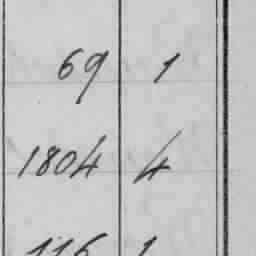 69 1
1804 4
116 1